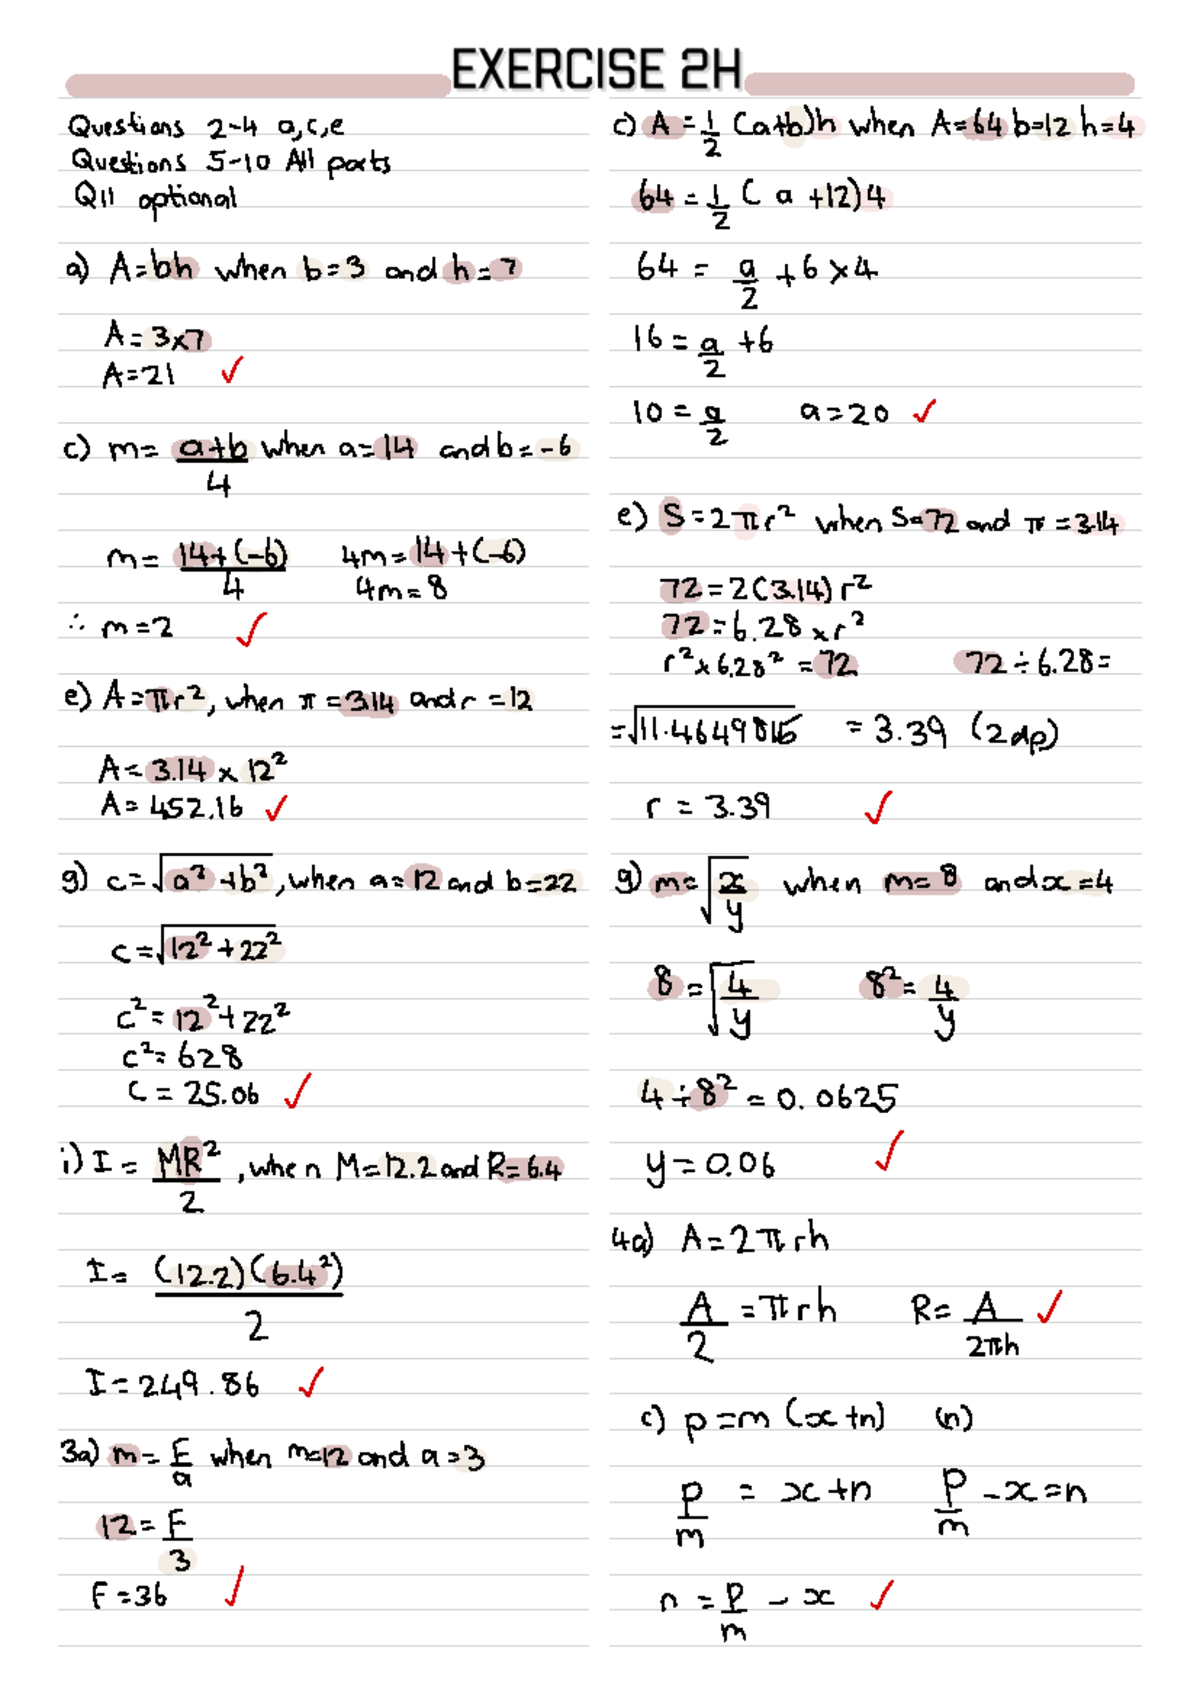 EXERCISE 2H
Questions 2-4 a,c,e
Questions 5-10 All parts
Q11 optional
a) A=bh when b=3 and h=7
A=3×7
A=21 ✓
c) m= a+b/4 when a=14 and b=-6
m= 14+(-6)/4 4m=14+(-6)
4m=8
∴ m=2 ✓
e) A=πr², when π=3.14 and r=12
A=3.14×12²
A=452.16 ✓
g) c=√a²+b², when a=12 and b=22
c=√12²+22²
c²=12²+22²
c²=628
c=25.06 ✓
i) I= MR²/2, when M=12.2 and R=6.4
I= (12.2)(6.4²)/2
I=249.86 ✓
3a) m= F/a when m=12 and a=3
12= F/3
F=36 ✓
c) A=1/2 (a+b)h when A=64 b=12 h=4
64=1/2 (a+12)4
64= a/2 +6×4
16= a/2 +6
10= a/2 a=20 ✓
e) S=2πr² when S=72 and π=3.14
72=2(3.14)r²
72=6.28×r²
r²×6.28²=72 72÷6.28=
=√11.4649815 =3.39 (2dp)
r=3.39 ✓
g) m=√x/y when m=8 and x=4
8=√4/y 8²=4/y
4÷8²=0.0625
y=0.06 ✓
4a) A=2πrh
A/2=πrh R=A/2πh ✓
c) p=m(x+n) (n)
P/m=x+n P/m-x=n
n=P/m-x ✓